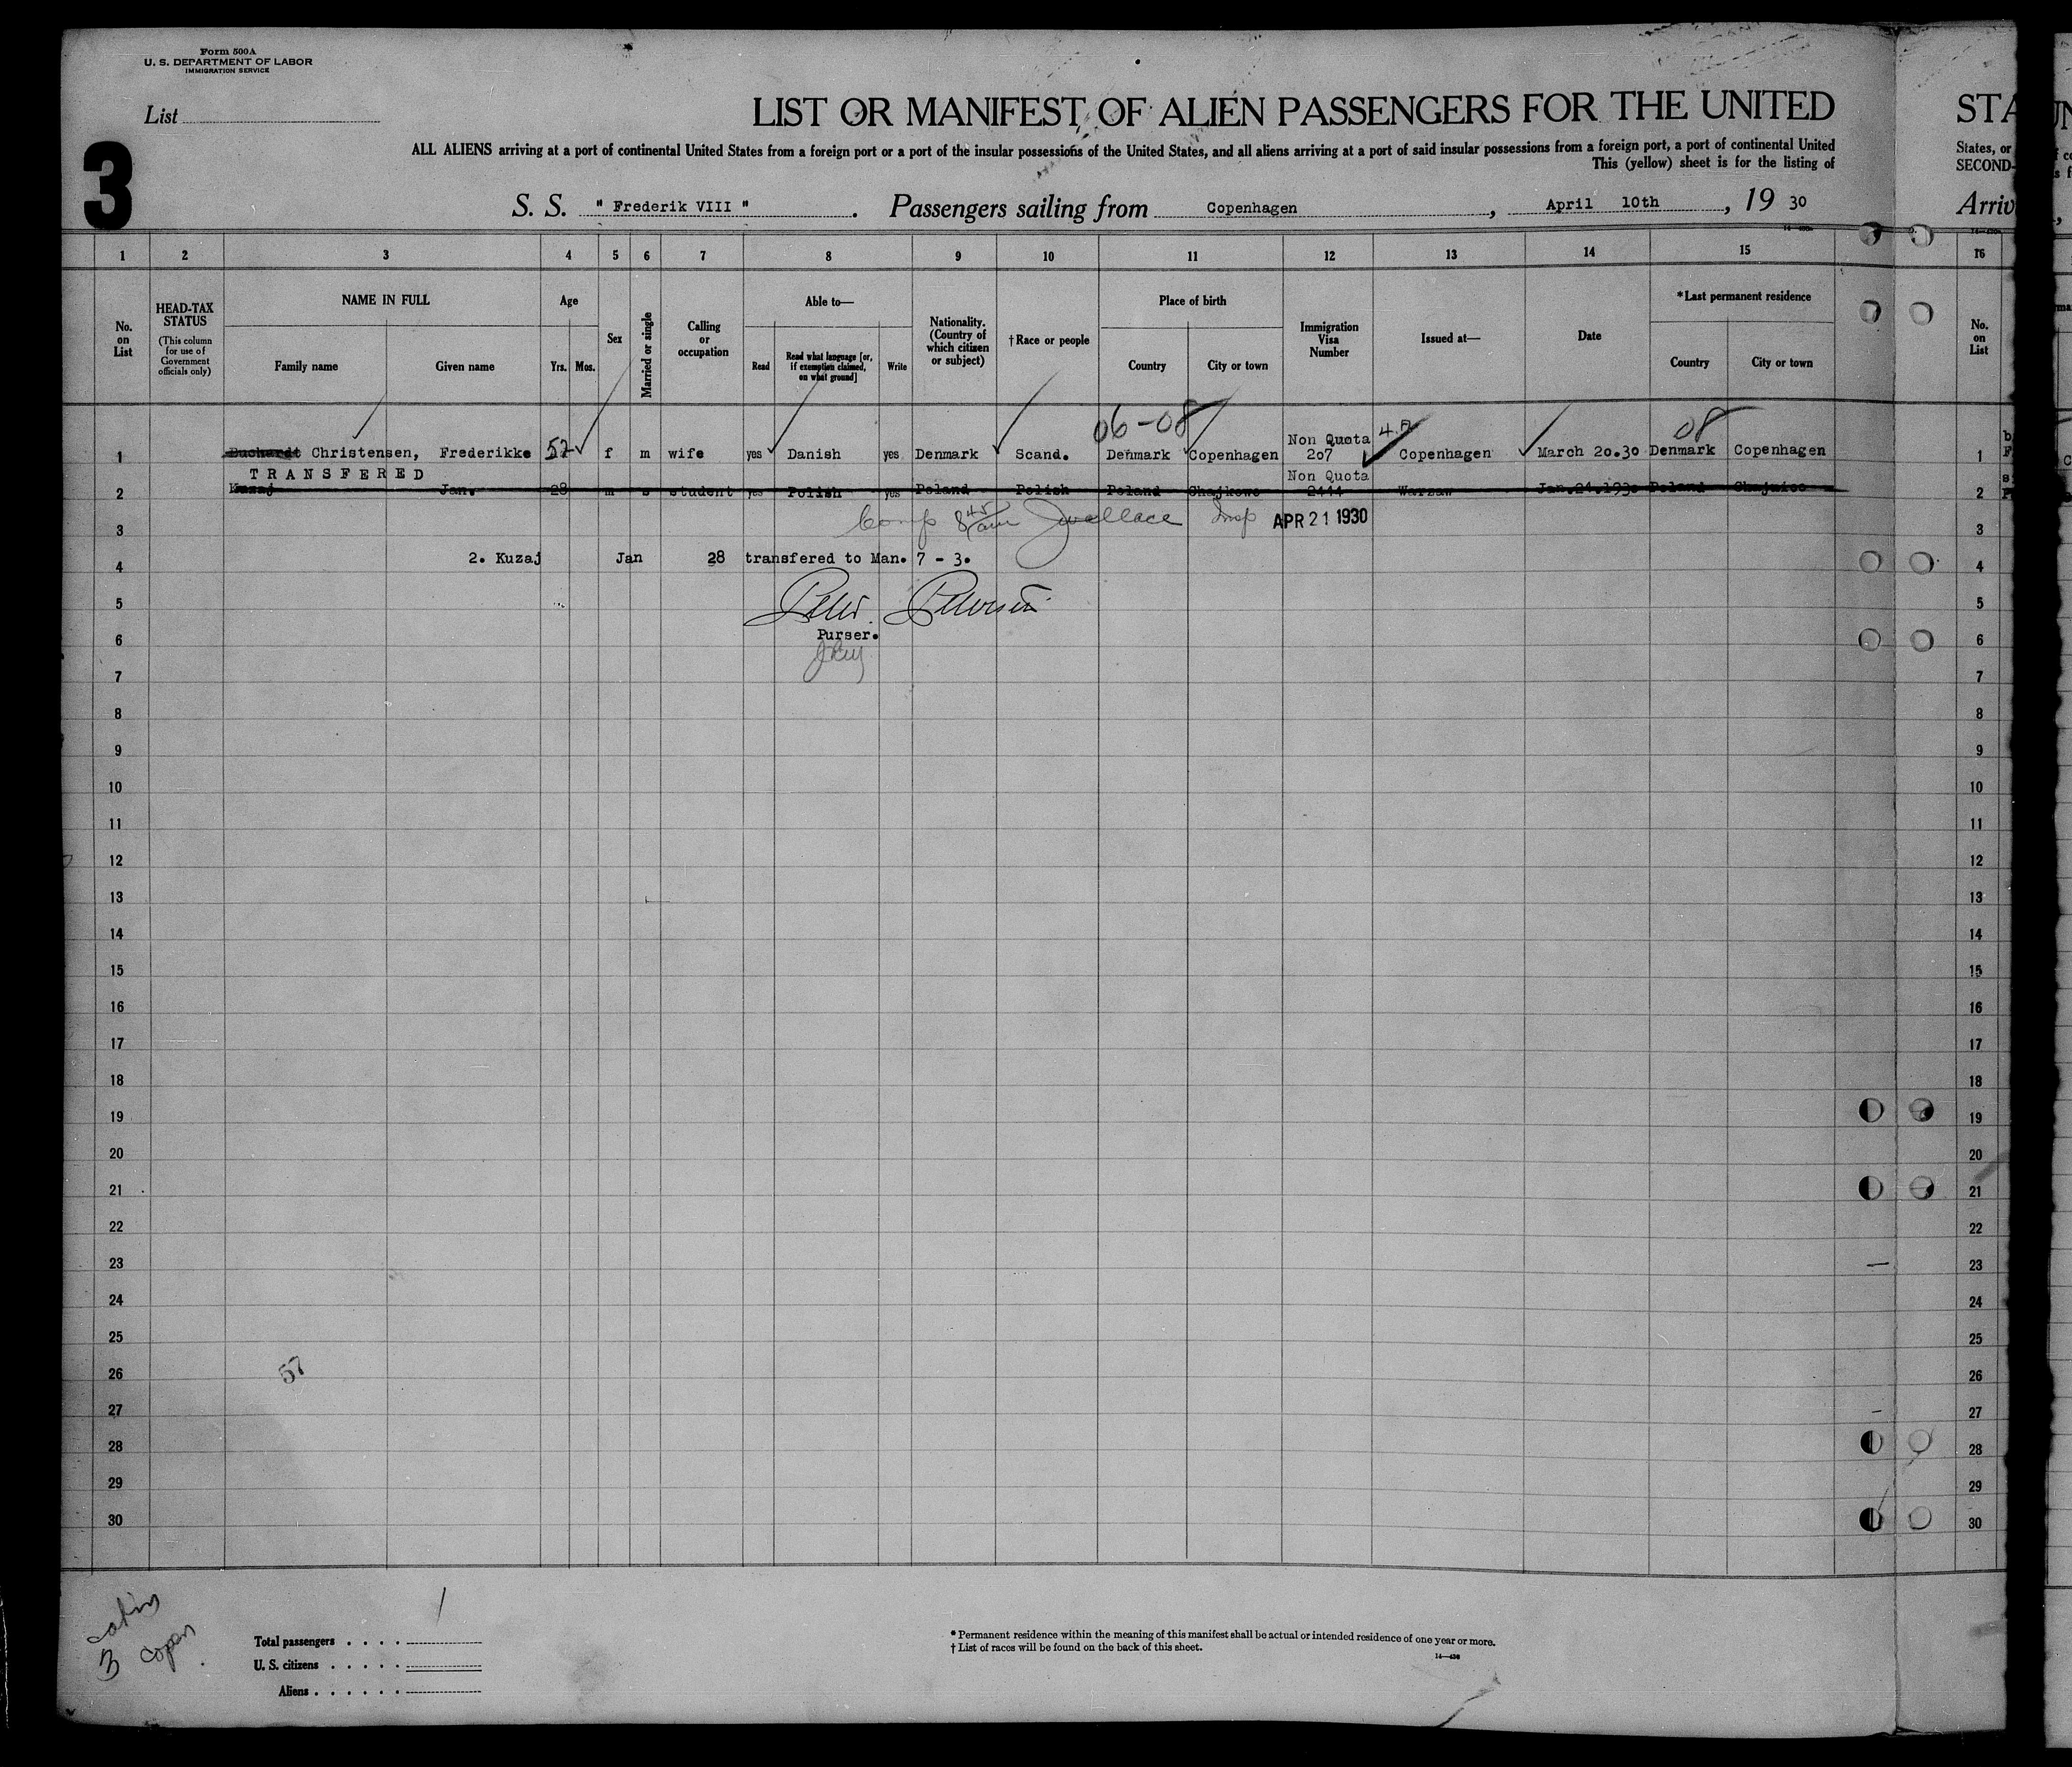 Form 500A
U. S. DEPARTMENT OF LABOR
IMMIGRATION SERVICE
List
3
LIST OR MANIFEST OF ALIEN PASSENGERS FOR THE UNITED
STA
ALL ALIENS arriving at a port of continental United States from a foreign port or a port of the insular possessions of the United States, and all aliens arriving at a port of said insular possessions from a foreign port, a port of continental United
States, or
This (yellow) sheet is for the listing of
SECOND-
S. S. " Frederik VIII ". Passengers sailing from Copenhagen, April 10th, 19 30
Arriv
1 2 3 4 5 6 7 8 9 10 11 12 13 14 15 16
No. on List
HEAD-TAX STATUS
(This column for use of Government officials only)
NAME IN FULL
Family name Given name
Age
Yrs. Mos.
Sex
Married or single
Calling or occupation
Able to—
Read
Read what language [or, if exemption claimed, on what ground]
Write
Nationality. (Country of which citizen or subject)
†Race or people
Place of birth
Country City or town
Immigration Visa Number
Issued at—
Date
*Last permanent residence
Country City or town
No. on List
06-08 08
Non Quota
1 Buchardt Christensen, Frederikke 57 f m wife yes Danish yes Denmark Scand. Denmark Copenhagen 207 Copenhagen March 20.30 Denmark Copenhagen 1
TRANSFERED Non Quota
2 Kuzaj Jan. 28 m s student yes Polish yes Poland Polish Poland 2444 Warsaw Jan.24.1930 Poland 2
3 Comp 8 45 am Jwallace Insp APR 21 1930 3
4 2. Kuzaj Jan 28 transfered to Man. 7 - 3. 4
5 Peter Petersen 5
6 Purser. 6
7 7
8 8
9 9
10 10
11 11
12 12
13 13
14 14
15 15
16 16
17 17
18 18
19 19
20 20
21 21
22 22
23 23
24 24
25 25
26 57 26
27 27
28 28
29 29
30 30
cabin
3 copen
1
Total passengers
U. S. citizens
Aliens
* Permanent residence within the meaning of this manifest shall be actual or intended residence of one year or more.
† List of races will be found on the back of this sheet.
14—430